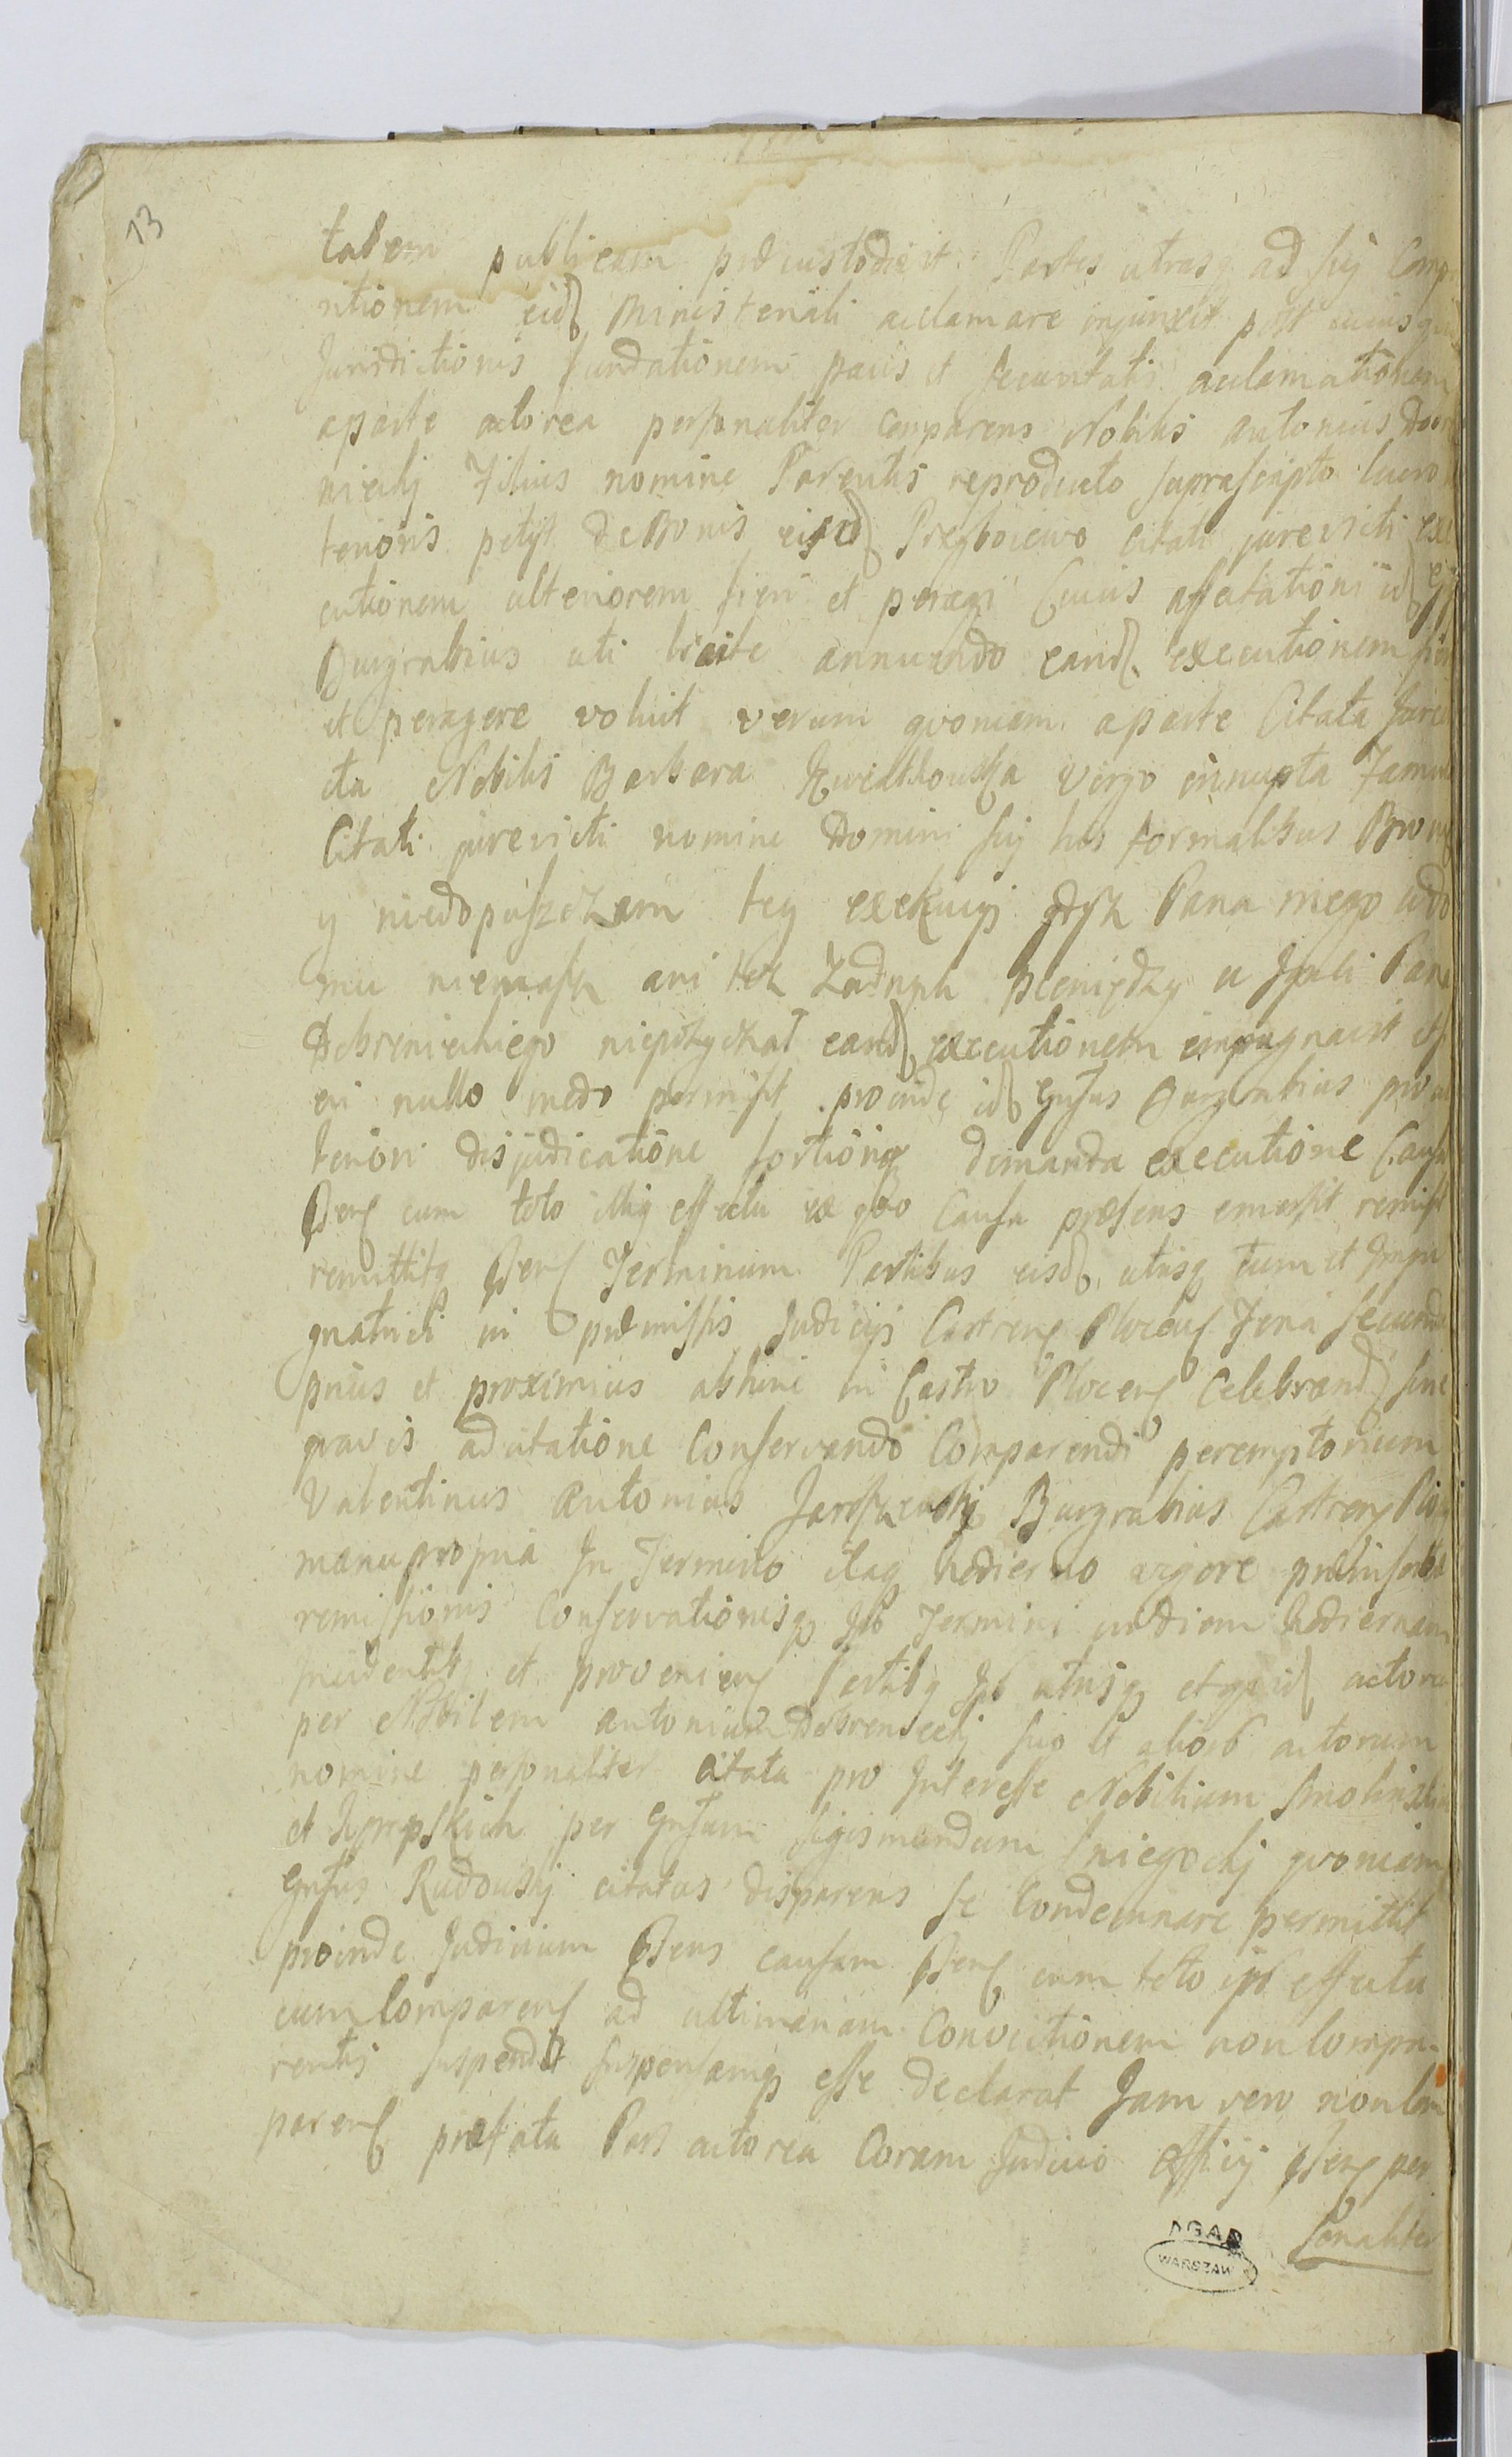 13
tatem publicam præcustodivit Partes utrasq ad sui Comp
ritionem eid Ministeriali acclamare injunxit post cuius qu
Jurisdictionis fundationem pacis et securitatis acclamationem
aparte actorea personaliter Comparens Nobilis Antonius Dobr
niecki Filius nomine Parentis reproducto suprascripto
tenoris petyt de Bonis eisd Przyboiewo Citati jurevicti exe
cutionem ulteriorem fieri et peragi Cuius affectationi id
Burgrabius uti licite annuendo eand executionem
et peragere voluit verum quoniam aparte Citata Jurevi
cta Nobilis Barbara Kwiatkowska Virgo innupta Famula
Citati jurevicti nomine Domini sui his formalibus Bronię
y niedopuszczam tey exekucyi gdysz Pana mego wdo
mu niemasz ani tesz Zadnych pieniędzy u Jpali Pana
Debrznieckiego niepożyczał eand executionem impugnavit et
ei nullo modo permisit proinde id Gnsus Burgrabius pro ul
teriori disjudicatione fortioriq demanda executione Causa
Psen cum toto illiq effectu ex quo Causa præsens emersit remisit
remittitq Psen Terminum Partibus eisd utrisq tum et Impu
gnatrici in præmissis Judicijs Castren Plocen Feria secunda
prius et proximius abhinc in Castro Plocen Celebrand sine
quavis adcitatione Conservando Comparendi peremptorium
Valentinus Antonius Burgrabius Castren Ploc
manu propria In Termino itaq hodierno vigore præinserta
remissionis Conservationisq Jpś Termini in diem hodiernam
incidenti et provenien Partibq Jpś utrisq et quid actorea
per Nobilem Antonium Debrzniecki suo et aliorś actorum
nomine personaliter citata pro Interesse Nobilium Smolinskich
et per Gnsum Sigismundum Sniegocki quoniam
Gnsus Rudowski citatus disparens se Condemnare permittit
proinde Judicium Psens causam Psen cum toto ipś effectu
cum Comparen ad ultimariam Convictionem non Compa-
rentis suspendit suspensamq esse declarat Jam vero non Com
paren præfata Pars actorea Coram Judicio officij Psen per
sonaliter
AGAD
WARSZAWA